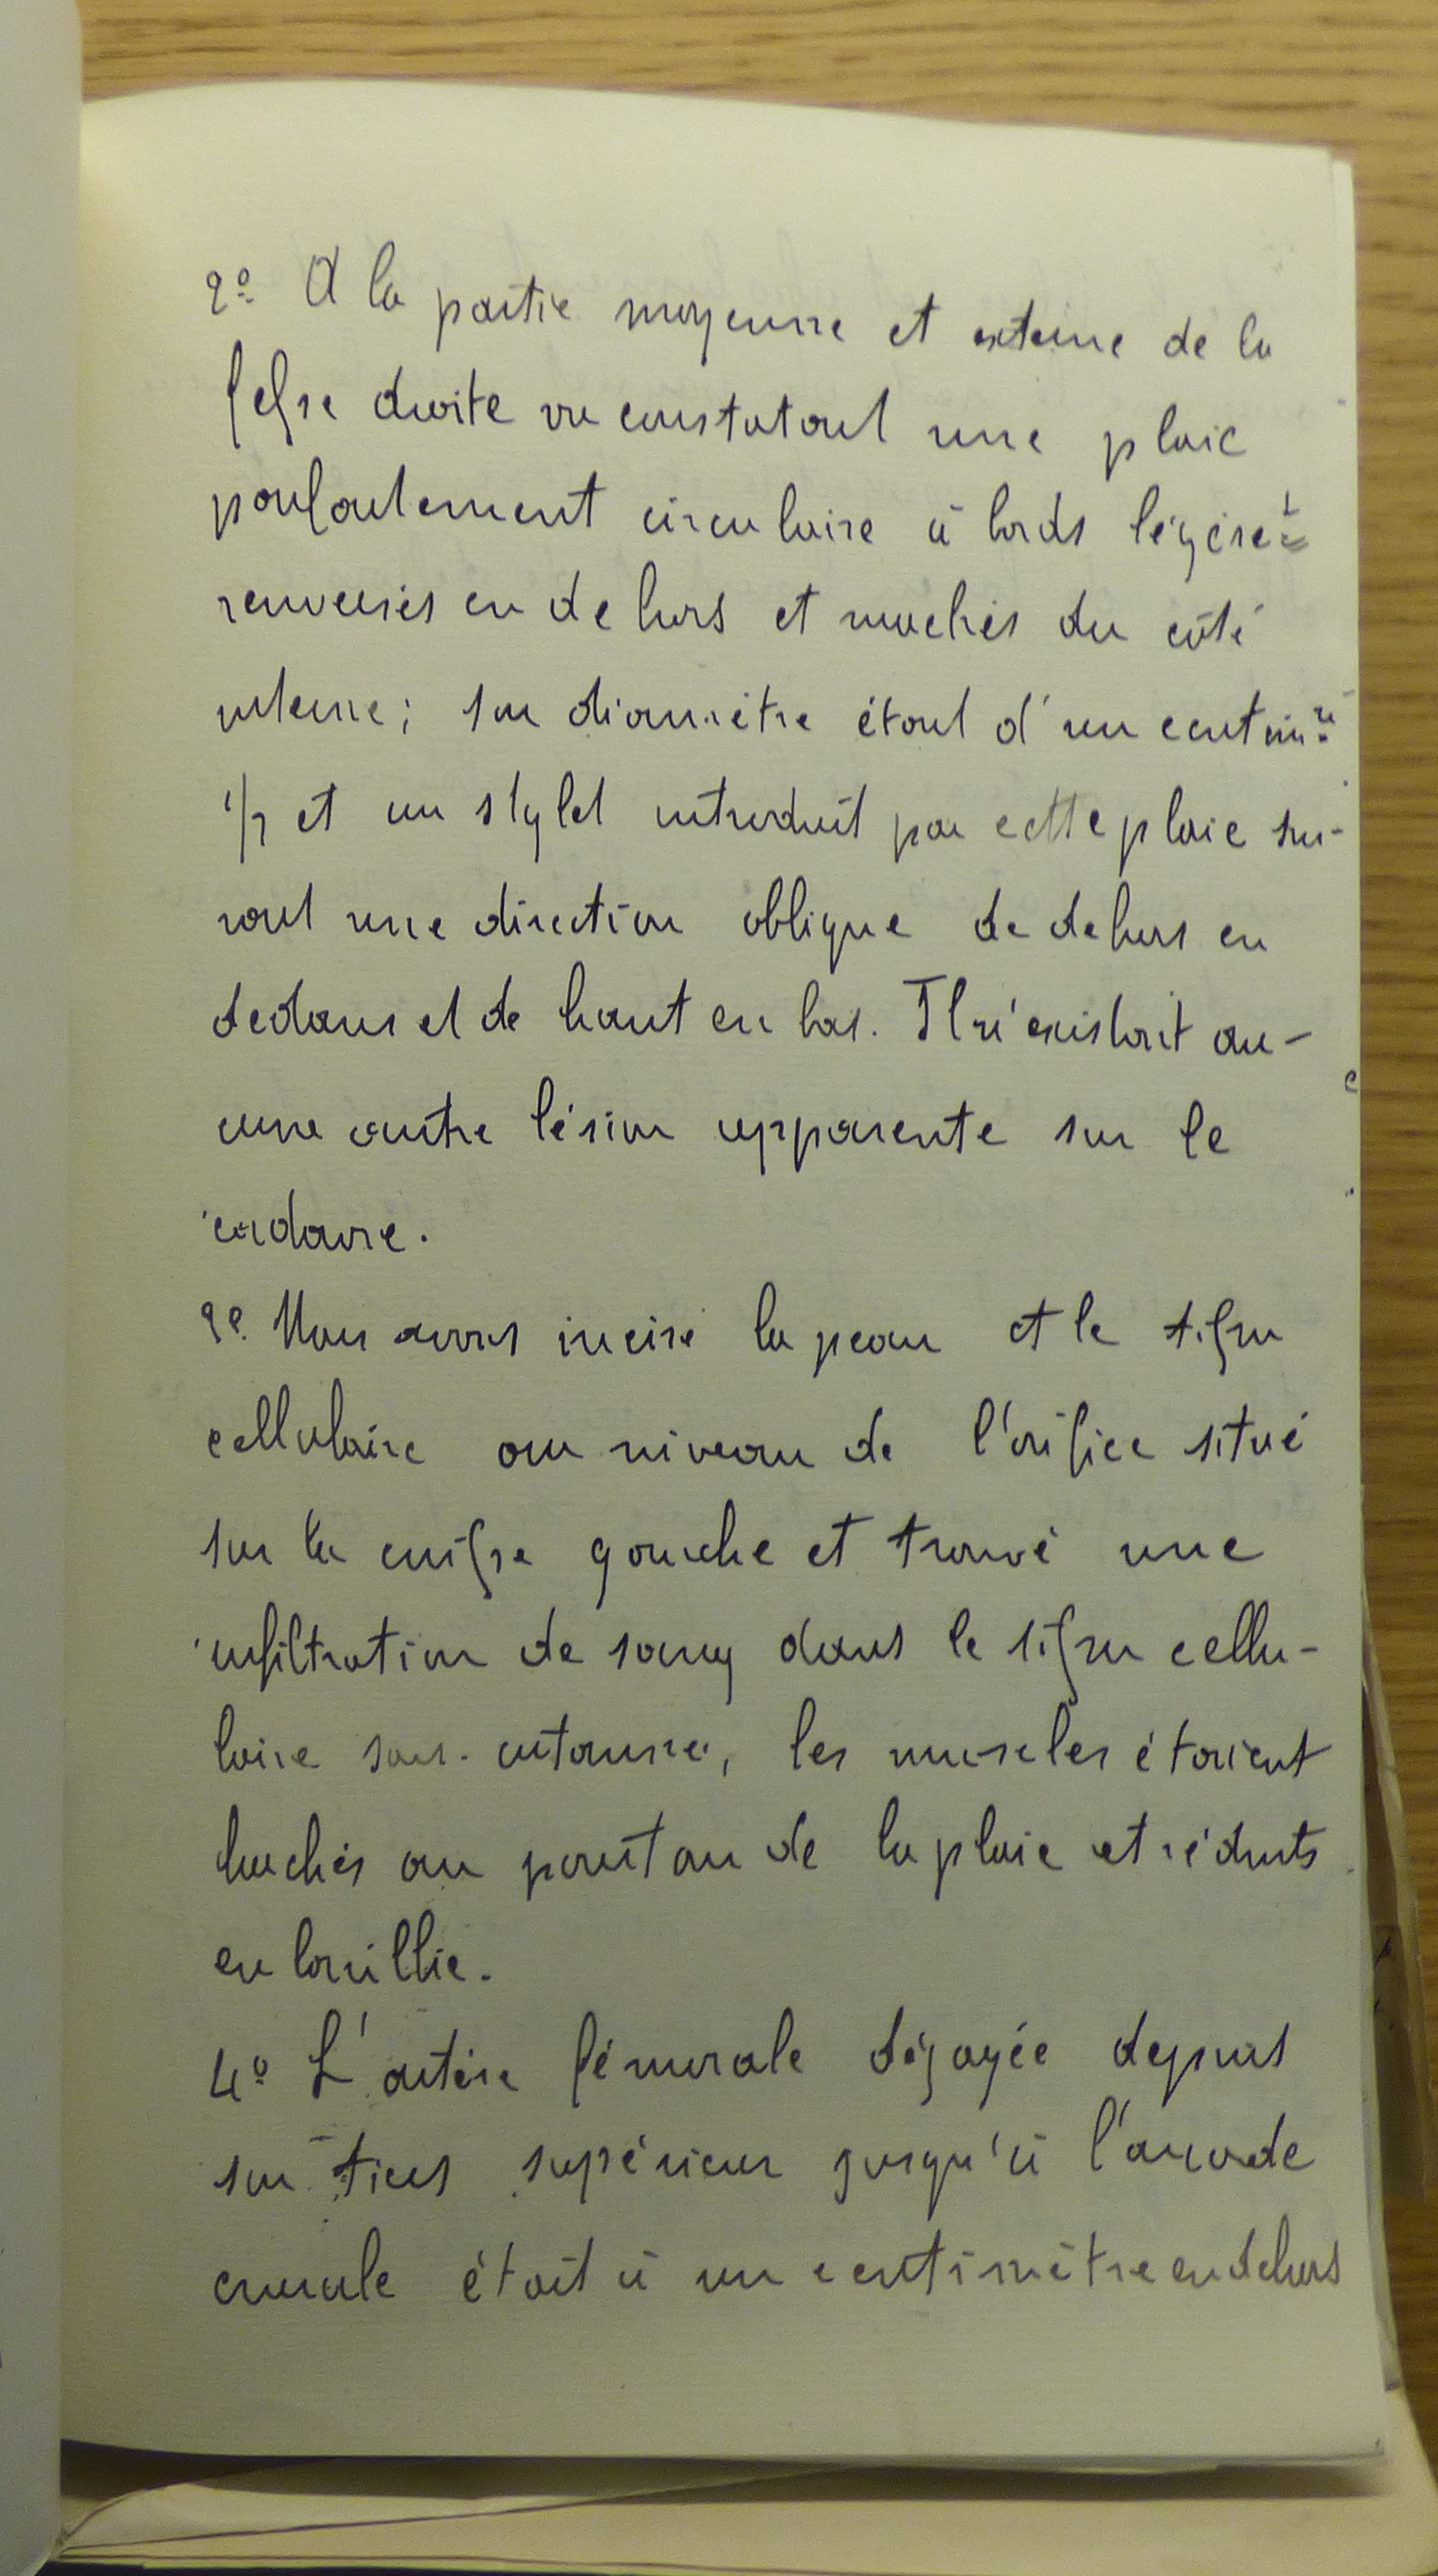 2º A la partie moyenne et externe de la
fesse droite on constatait une plaie
parfaitement circulaire à bords légèret
renversés en dehors et machés du côté
interne; son diamètre était d'un centimre
1/2 et un stylet introduit par cette plaie sui-
vait une direction oblique de dehors en
dedans et de haut en bas. Il n'existait au-
cune autre lésion apparente sur le
cadavre.
Nous avons incisé la peau et le tissu
cellulaire au niveau de l'orifice situé
sur la cuisse gauche et trouvé une
infiltration de sang dans le tissu cellu-
laire sous-cutanné, les muscles étaient
hachés au pourtour de la plaie et réduits
en bouillie.
4º L'artère fémorale dégagée depuis
son tiers supérieur jusqu'à l'arcade
crurale était à un centimètre en dehors